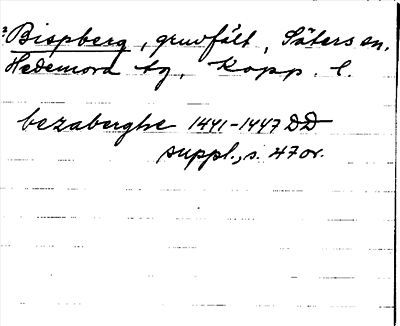 Bispberg, gruvfält, Säters sn,
Hedemora tg, Kopp. l.
bezaberghe 1441-1447 DD
suppl., s. 47 or.